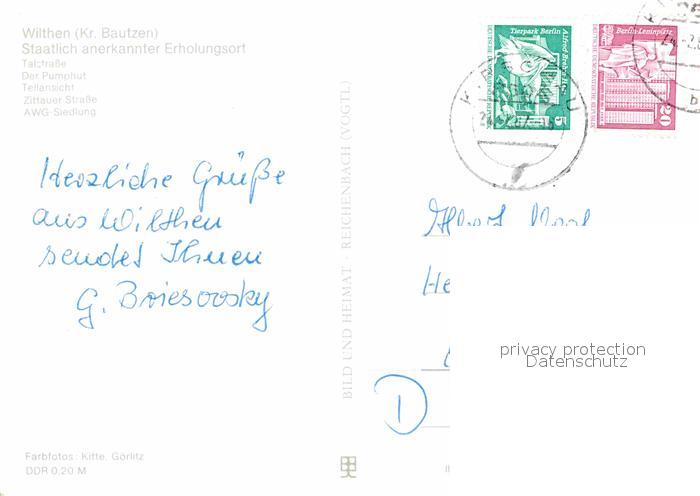 Wilthen (Kr. Bautzen)
Staatlich anerkannter Erholungsort
Talstraße
Der Pumphut
Teilansicht
Zittauer Straße
AWG-Siedlung
Herzliche Grüße
aus Wilthen
sendet Ihnen
G. Briesovsky
Farbfotos: Kitte, Görlitz
DDR 0,20 M
BILD UND HEIMAT · REICHENBACH (VOGTL)
Tierpark Berlin
DEUTSCHE DEMOKRATISCHE REPUBLIK
5
Berlin-Leninplatz
DEUTSCHE DEMOKRATISCHE REPUBLIK
20
Albert
He
D
privacy protection
Datenschutz